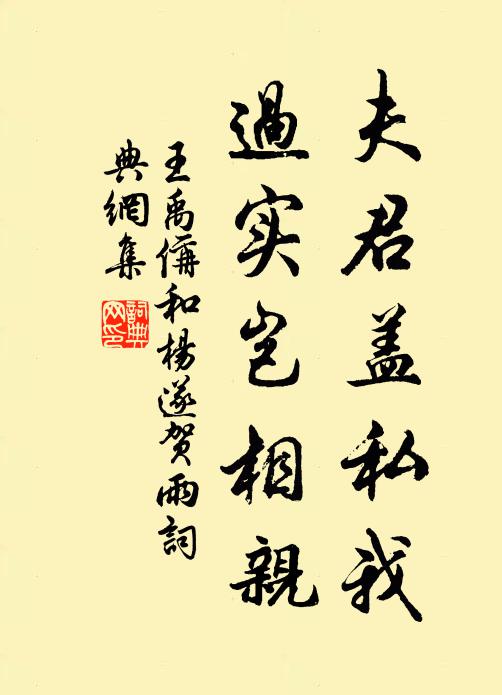 夫君盖私我
過实岂相親
王禹偁和楊遂贺雨詞
典網集
詞典
网印